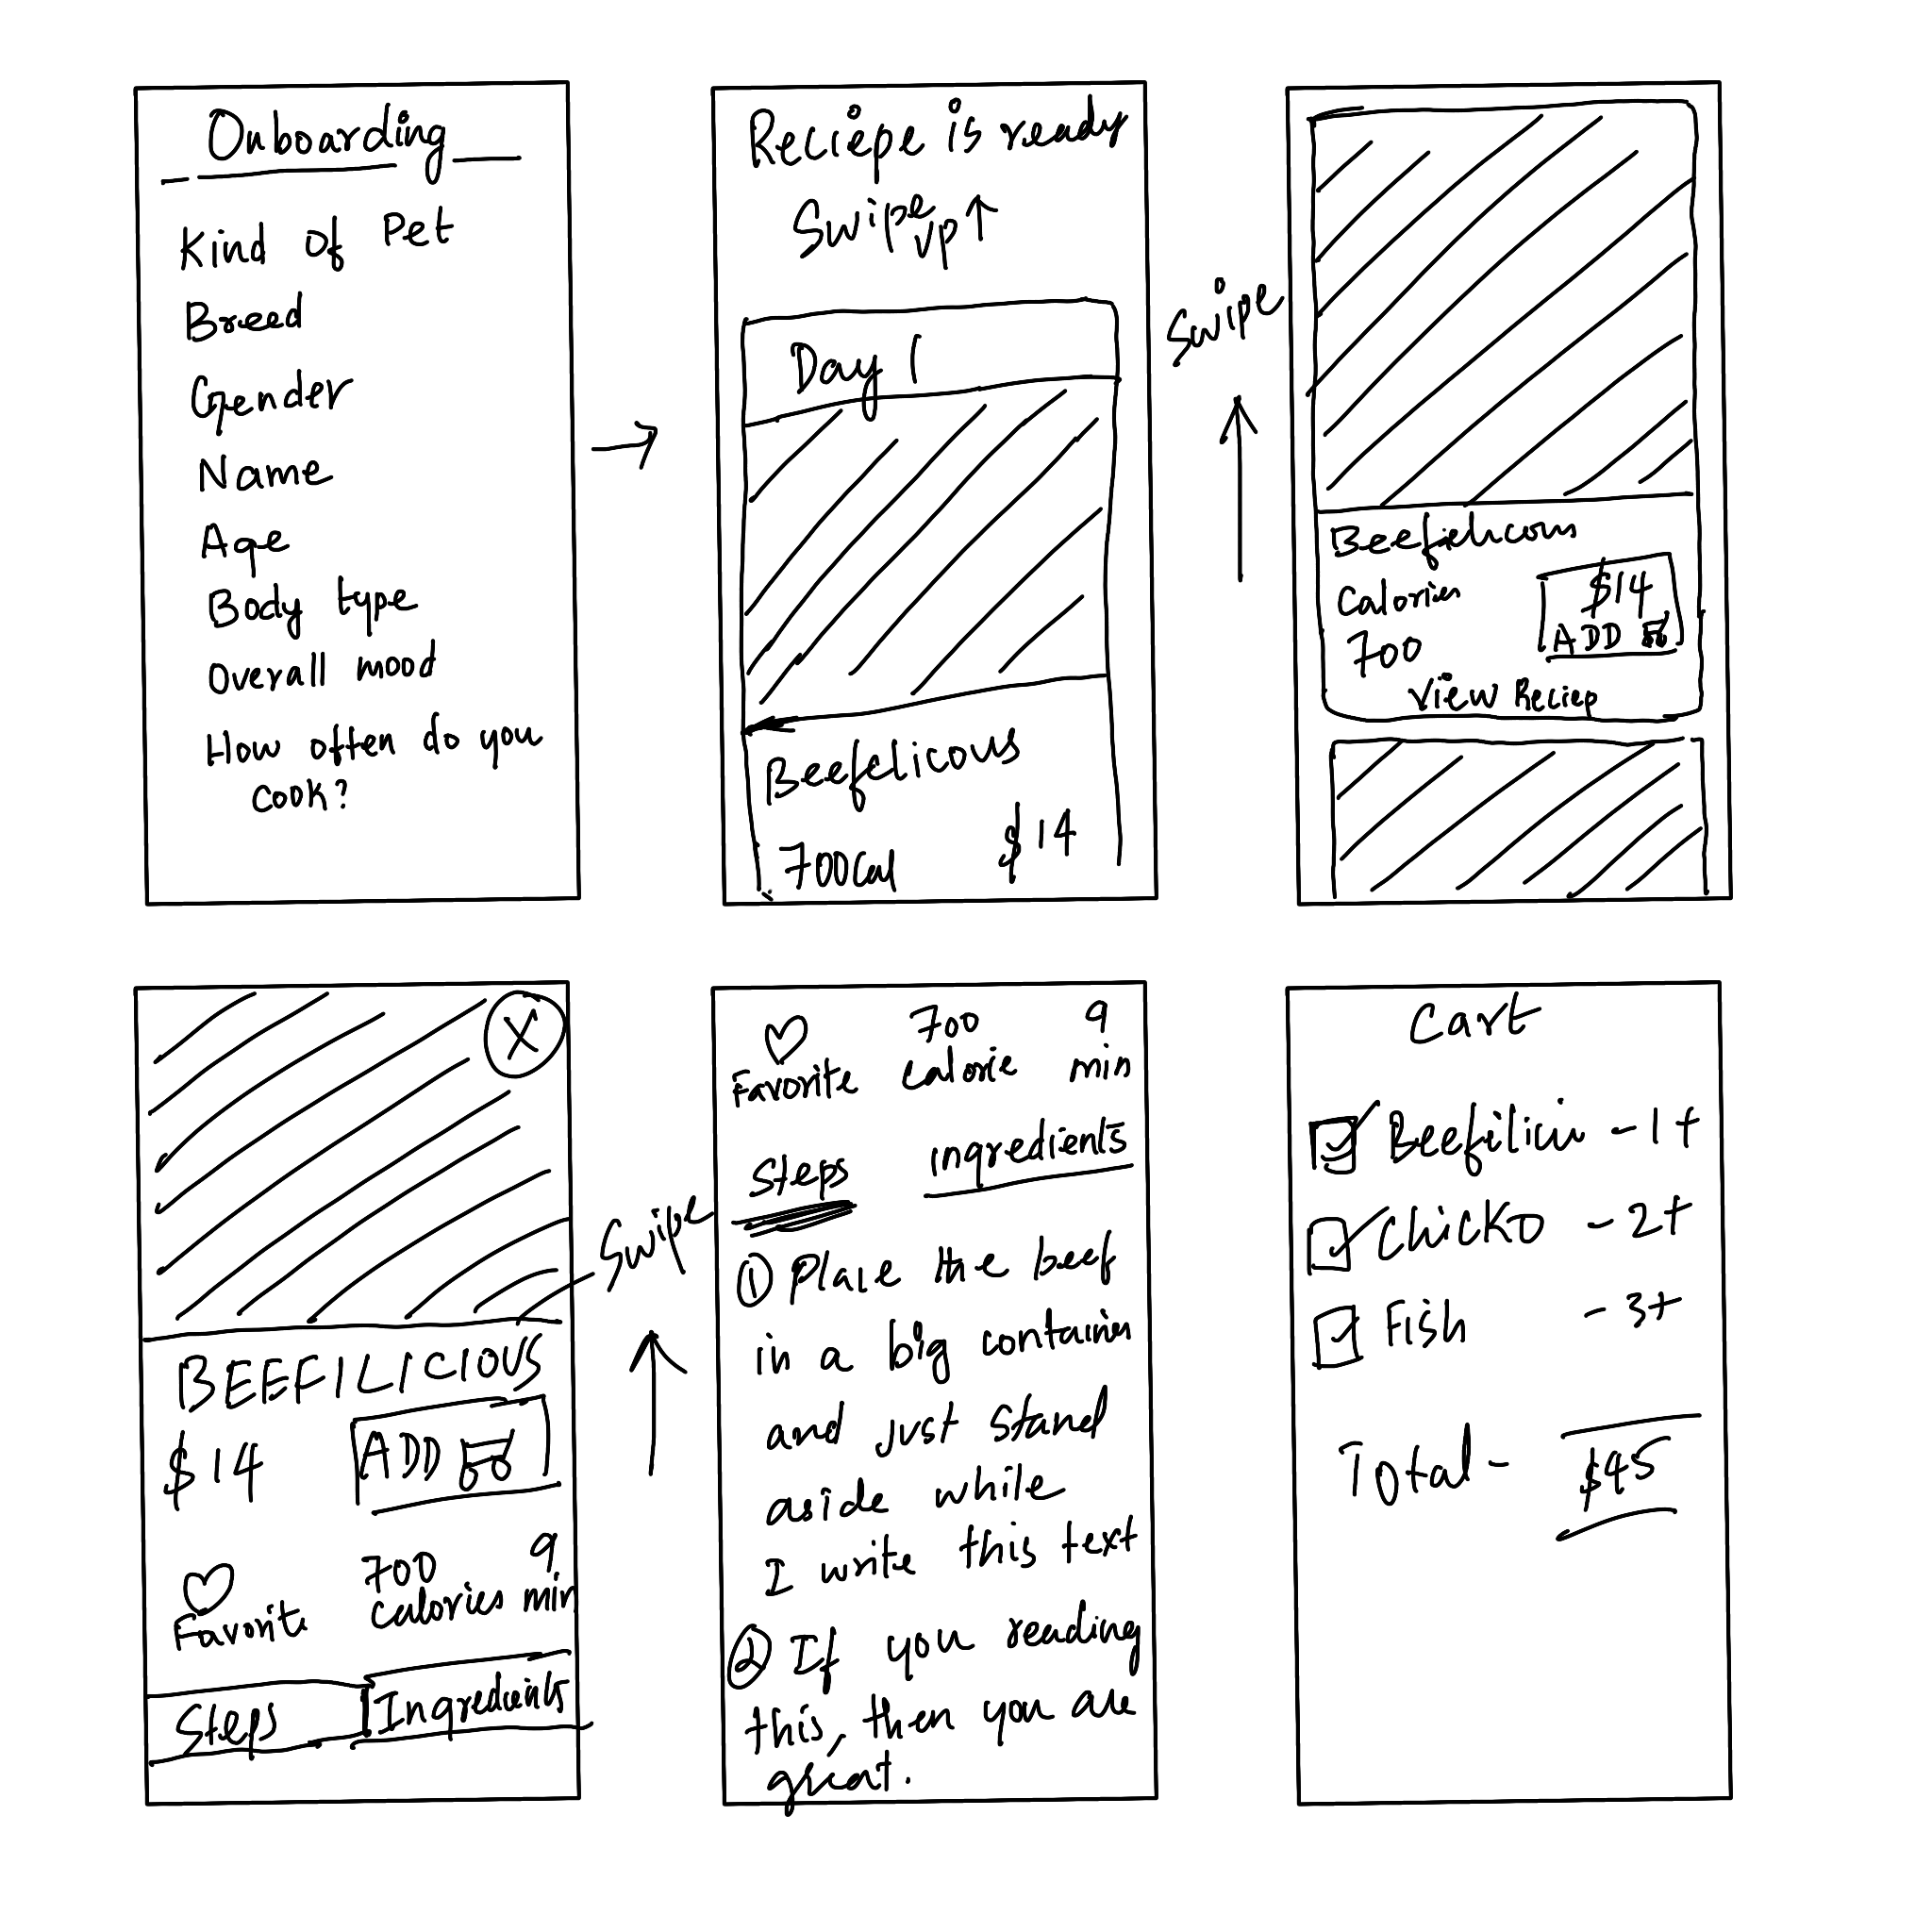 Onboarding
Kind of Pet
Breed
Gender
Name
Age
Body type
Overall mood
How often do you
cook?
Reciepe is ready
Swipe up ↑
Day 1
Beefelicous
700 Cal $14
Swipe
Beefelicous
Calories
700
$14
ADD
View Reciep
X
BEEFILICIOUS
$14 ADD
700 9
Favorite calories min
Steps Ingredients
Swipe
700 9
Favorite calorie min
Steps ingredients
① Place the beef
in a big container
and just stand
aside while
I write this text
② If you reading
this, then you are
great.
Cart
- 1 +
Chicko - 2 +
Fish - 3 +
Total - $45